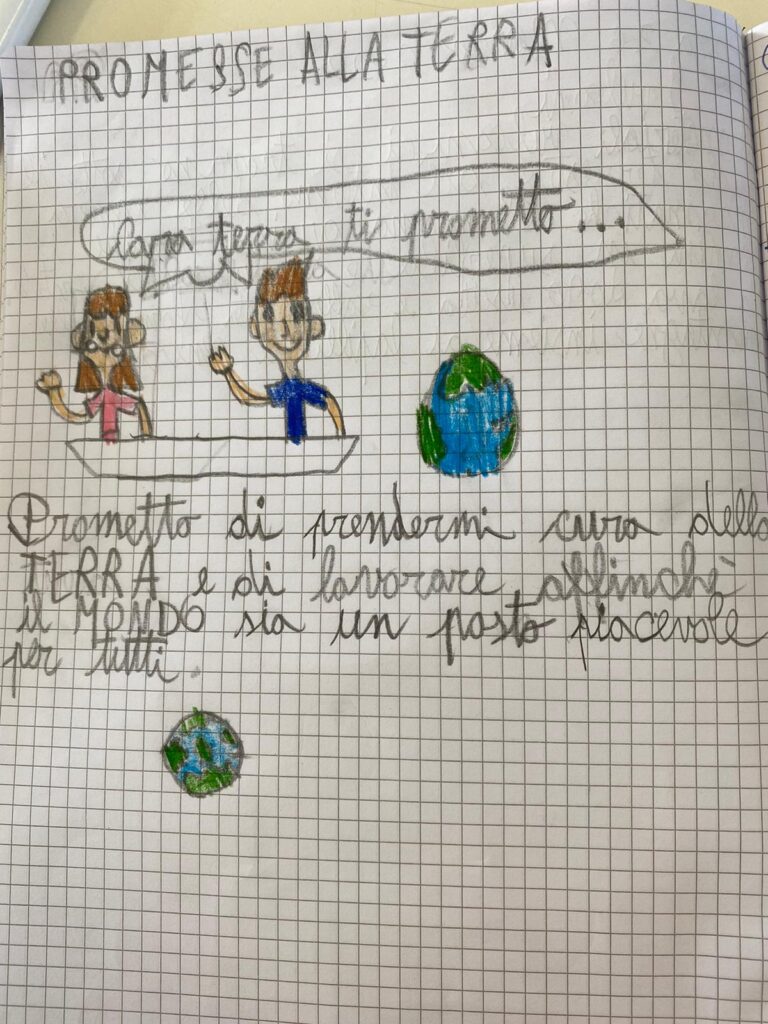 PROMESSE ALLA TERRA
Cara terra, ti prometto...
Prometto di prendermi cura della
TERRA e di lavorare affinché
il MONDO sia un posto piacevole
per tutti.